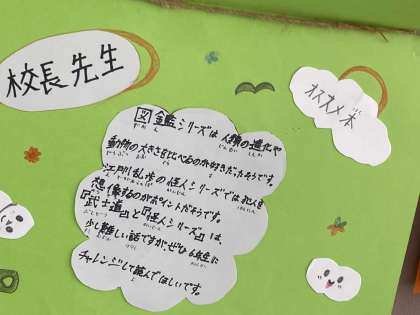 校長先生
オススメ本
図鑑シリーズは人類の進化や
動物の大きさを比べるのが好きだったそうです。
江戸川乱歩の怪人シリーズでは犯人を
想像するのがポイントだそうです。
『武士道』と『怪人シリーズ』は、
少し難しい話ですが、ぜひ6年生に
チャレンジして読んでほしいです。